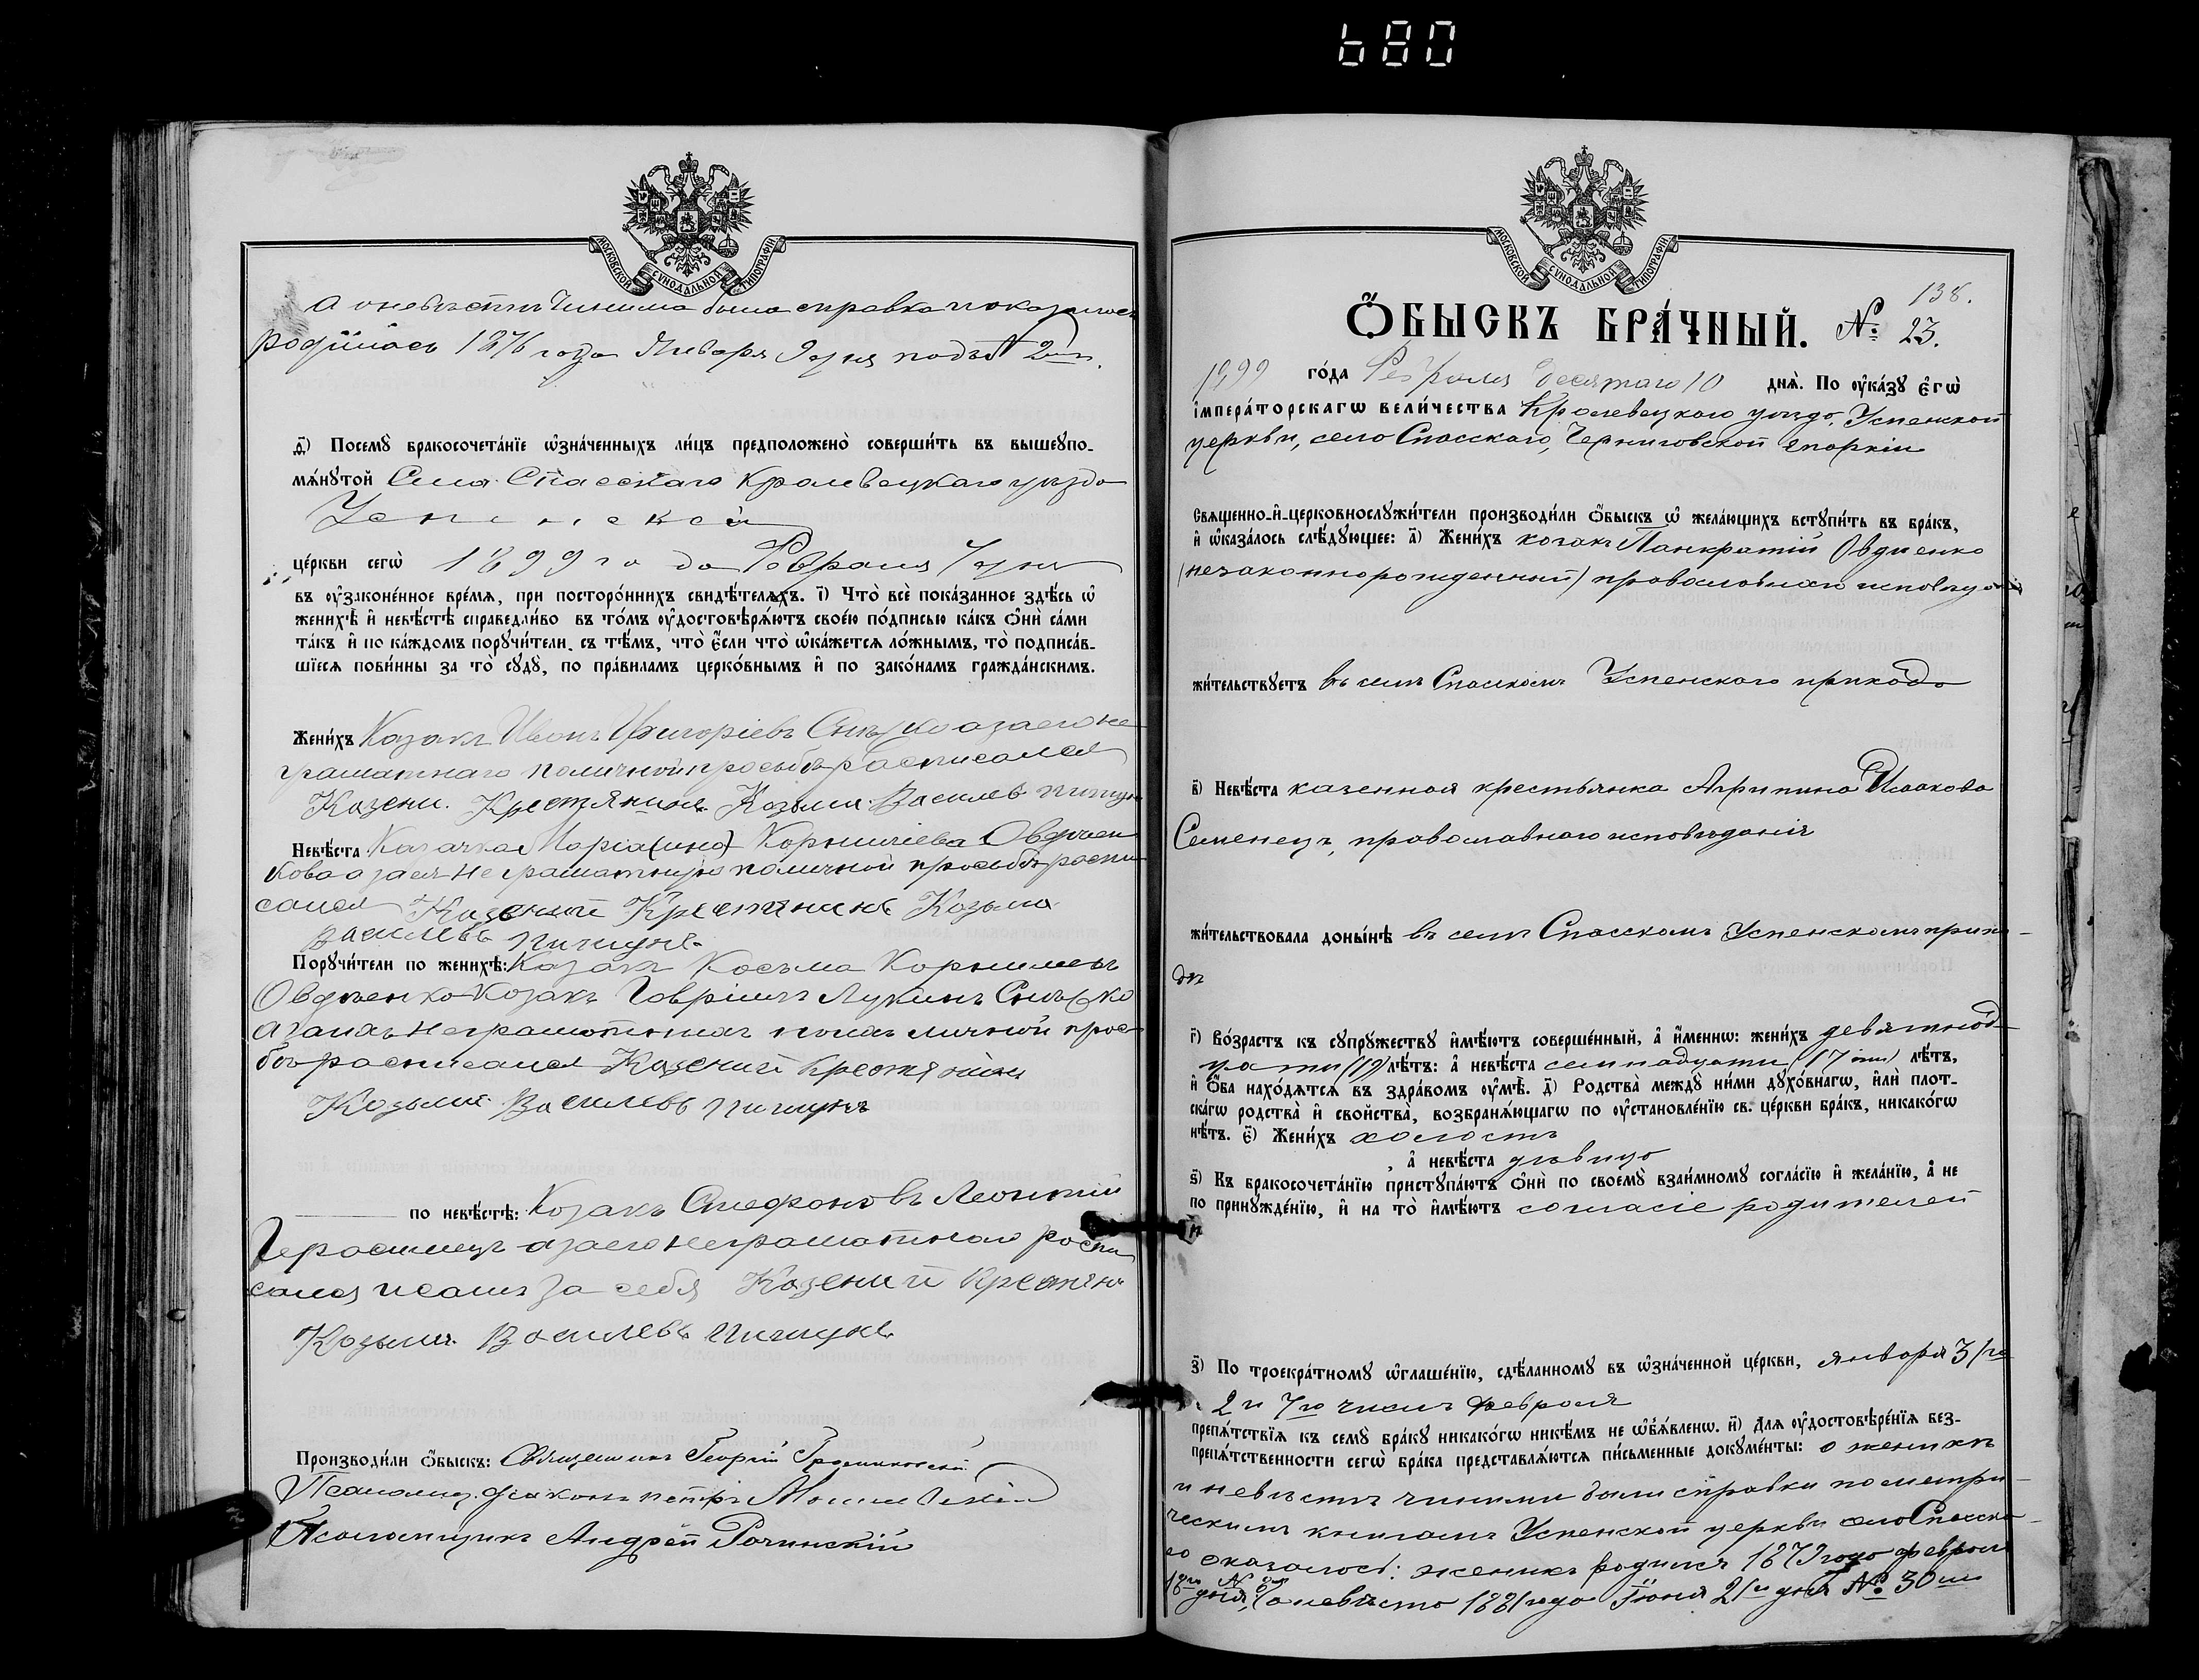 680
МОСКОВСКОЙ СѴНОДАЛЬНОЙ ТИПОГРАФІИ
а о невѣстѣ чинима была справка и оказалось
родилась 1876 года Января 9 дня подъ № 2мъ.
д҃) Посемꙋ̀ бракосочета́нїе ѡ҆зна́ченныхъ ли́цъ предположено̀ соверши́ть въ вышеꙋпо-
мѧ́нꙋтой Села Спасскаго Кролевецкаго уѣзда
Успенской
це́ркви сегѡ̀ 1899 года Февраля 7 дня
въ ᲂу҆законе́нное вре́мѧ, при посторо́ннихъ свидѣ́телѧхъ. і҃) Что̀ всѐ пока́занное здѣ́сь ѡ҆
женихѣ̀ и҆ невѣ́стѣ справедли́во въ то́мъ ᲂу҆достовѣрѧ́ютъ свое́ю по́дписью ка́къ ѻ҆нѝ са́ми
та́къ и҆ по ка́ждомъ порꙋчи́тели, съ тѣ́мъ, что̀ є҆́сли что̀ ѡ҆ка́жетсѧ ло́жнымъ, то̀ подписа́в-
шїесѧ пови́нны за то̀ сꙋдꙋ̀, по пра́виламъ церко́внымъ и҆ по зако́намъ гражда́нскимъ.
Жени́хъ Казакъ Иванъ Григоріевъ а за его не
граматнаго по личной просьбѣ росписался
Казени. Крестянинъ Козьма Василев
Невѣ́ста Казачка Марія Корниліева Овдіен
кова а за ея неграматную по личной просьбѣ роспи
сался Казений Крестянинъ Козьма
Василевъ
Порꙋчи́тели по женихѣ̀: Казакъ Косьма Корнилевъ
Овдѣенко Козакъ Гавріилъ Лукинъ
а за ихъ неграмотныхъ по ихъ личной прось
бѣ росписался Казений Крестянинъ
Козьма Василевъ
по невѣ́стѣ: Козакъ Стефановъ Леонтій
Герасимецъ а за его неграмотнаго роспи
сался и самъ за себя Казений Крестяни
Козьма Василевъ
Производи́ли ѻ҆́быскъ: Священникъ Георгій
діаконъ Петръ
Псаломщикъ Андрей Рачинскій
МОСКОВСКОЙ СѴНОДАЛЬНОЙ ТИПОГРАФІИ
138.
Ѻ҆́БЫСКЪ БРА́ЧНЫЙ. № 23.
1899 го́да Февраля десятаго 10 днѧ̀. По ᲂу҆ка́зꙋ є҆гѡ̀
і҆мпера́торскагѡ вели́чества Кролевецкаго уѣзда, Успенской
церкви, села Спасскаго, Черниговской епархіи
Свѧще́нно-и҆-церковнослꙋжи́тели производи́ли ѻ҆́быскъ ѡ҆ жела́ющихъ вступи́ть въ бра́къ,
и҆ ѡ҆каза́лось слѣ́дꙋющее: а҃) Жени́хъ козакъ Панкратій Овдіенко
(незаконнорожденный) православнаго исповѣданія
жи́тельствꙋетъ въ селѣ Спасскомъ Успенскаго прихода
в҃) Невѣ́ста казенная крестьянка Агрипина Исаакова
Семенецъ, православнаго исповѣданія
жи́тельствовала доны́нѣ въ селѣ Спасскомъ Успенскомъ прихо-
дѣ
г҃) Во́зрастъ къ сꙋпрꙋ́жествꙋ и҆мѣ́ютъ соверше́нный, а҆ и҆́меннѡ: жени́хъ девятнад-
цати (19) лѣ́тъ: а҆ невѣ́ста семнадцати (17 ти) лѣ́тъ,
и҆ ѻ҆́ба нахо́дѧтсѧ въ здра́вомъ ᲂу҆мѣ̀. д҃) Родства̀ междꙋ̀ ни́ми дꙋхо́внагѡ, и҆лѝ плот-
ска́гѡ родства̀ и҆ свойства̀, возбранѧ́ющагѡ по ᲂу҆становле́нїю св. це́ркви бра́къ, никако́гѡ
нѣ́тъ. є҃) Жени́хъ холостъ
, а҆ невѣ́ста дѣвица
ѕ҃) Къ бракосочета́нїю пристꙋпа́ютъ ѻ҆нѝ по своемꙋ̀ взаи́мномꙋ согла́сїю и҆ жела́нїю, а҆ не
по принꙋжде́нїю, и҆ на то̀ и҆мѣ́ютъ согласіе родителей
з҃) По троекра́тномꙋ ѡ҆глаше́нїю, сдѣ́ланномꙋ въ ѡ҆зна́ченной це́ркви, января 31го
2 и 7го числъ февраля
препѧ́тствїѧ къ семꙋ̀ бра́кꙋ никако́гѡ никѣ́мъ не ѡ҆б̾ѧ́вленѡ. и҃) Длѧ ᲂу҆достовѣре́нїѧ без-
препѧ́тственности сегѡ̀ бра́ка представлѧ́ютсѧ пи́сьменные докꙋме́нты: о женихѣ
и невѣстѣ чинимы были справки по метри-
ческимъ книгамъ Успенской церкви села Спасска-
го оказалось: женихъ родился 1879 года февраля
18го дня, № а невѣста 1881 года Іюня 21го дня № 30мъ